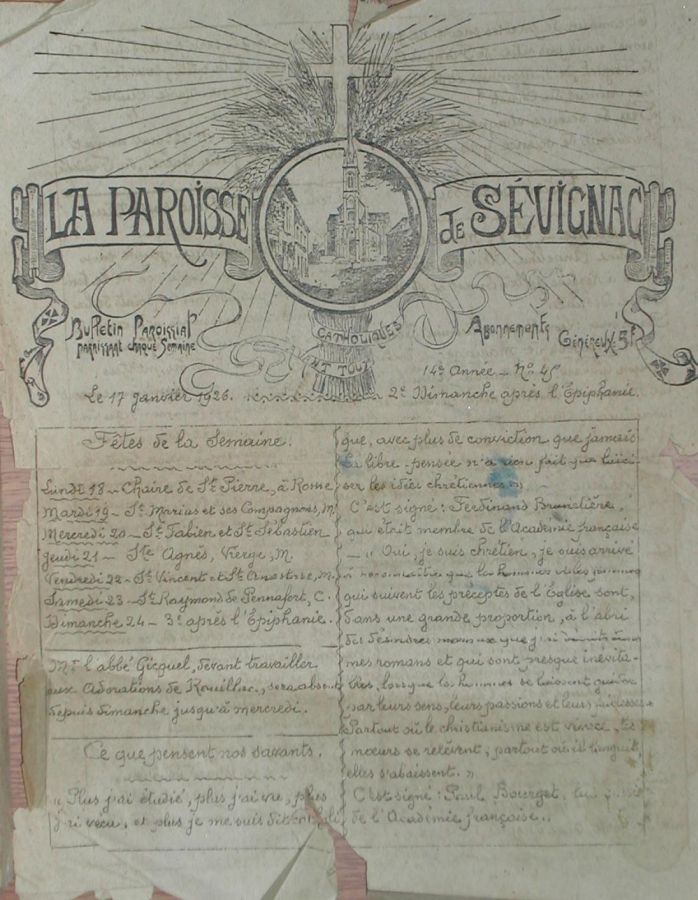 LA PAROISSE
de SÉVIGNAC
Bulletin Paroissial
paraissant chaque Semaine
CATHOLIQUES
AVANT TOUT
Abonnements
Généreux 5F
14e Année - No. 45
Le 17 janvier 1926.
2e Dimanche après l'Epiphanie.
Fêtes de la Semaine.
Lundi 18 - Chaire de St Pierre, à Rome
Mardi 19 - St Marius et ses Compagnons, M.
Mercredi 20 - St Fabien et St Sébastien
Jeudi 21 - Ste Agnès, Vierge, M
Vendredi 22 - St Vincent et St Anastase, M.
Samedi 23 - St Raymond de Pennafort, C.
Dimanche 24 - 3e après l'Epiphanie.
Mr l'abbé Gicquel, devant travailler
aux Adorations de Rouillac, sera absent
depuis dimanche jusqu'à mercredi.
Ce que pensent nos savants.
" Plus j'ai étudié, plus j'ai vu, plus
j'ai vécu, et plus je me suis dit
que, avec plus de conviction que jamais
la libre pensée n'a rien fait que
ser les idées chrétiennes "
C'est signé : Ferdinand Brunetière,
qui était membre de l'Académie française
- " Oui, je suis chrétien, je suis arrivé
à reconnaître que les hommes et les femmes
qui suivent les préceptes de l'Eglise sont,
dans une grande proportion, à l'abri
des désordres moraux que j'ai
mes romans et qui sont presque inévita-
bles, lorsque les hommes se laissent guider
par leurs sens, leurs passions et leurs faiblesses
Partout où le christianisme est vivace, les
mœurs se relèvent, partout où il languit
elles s'abaissent. "
C'est signé : Paul Bourget, lui aussi
de l'Académie française..